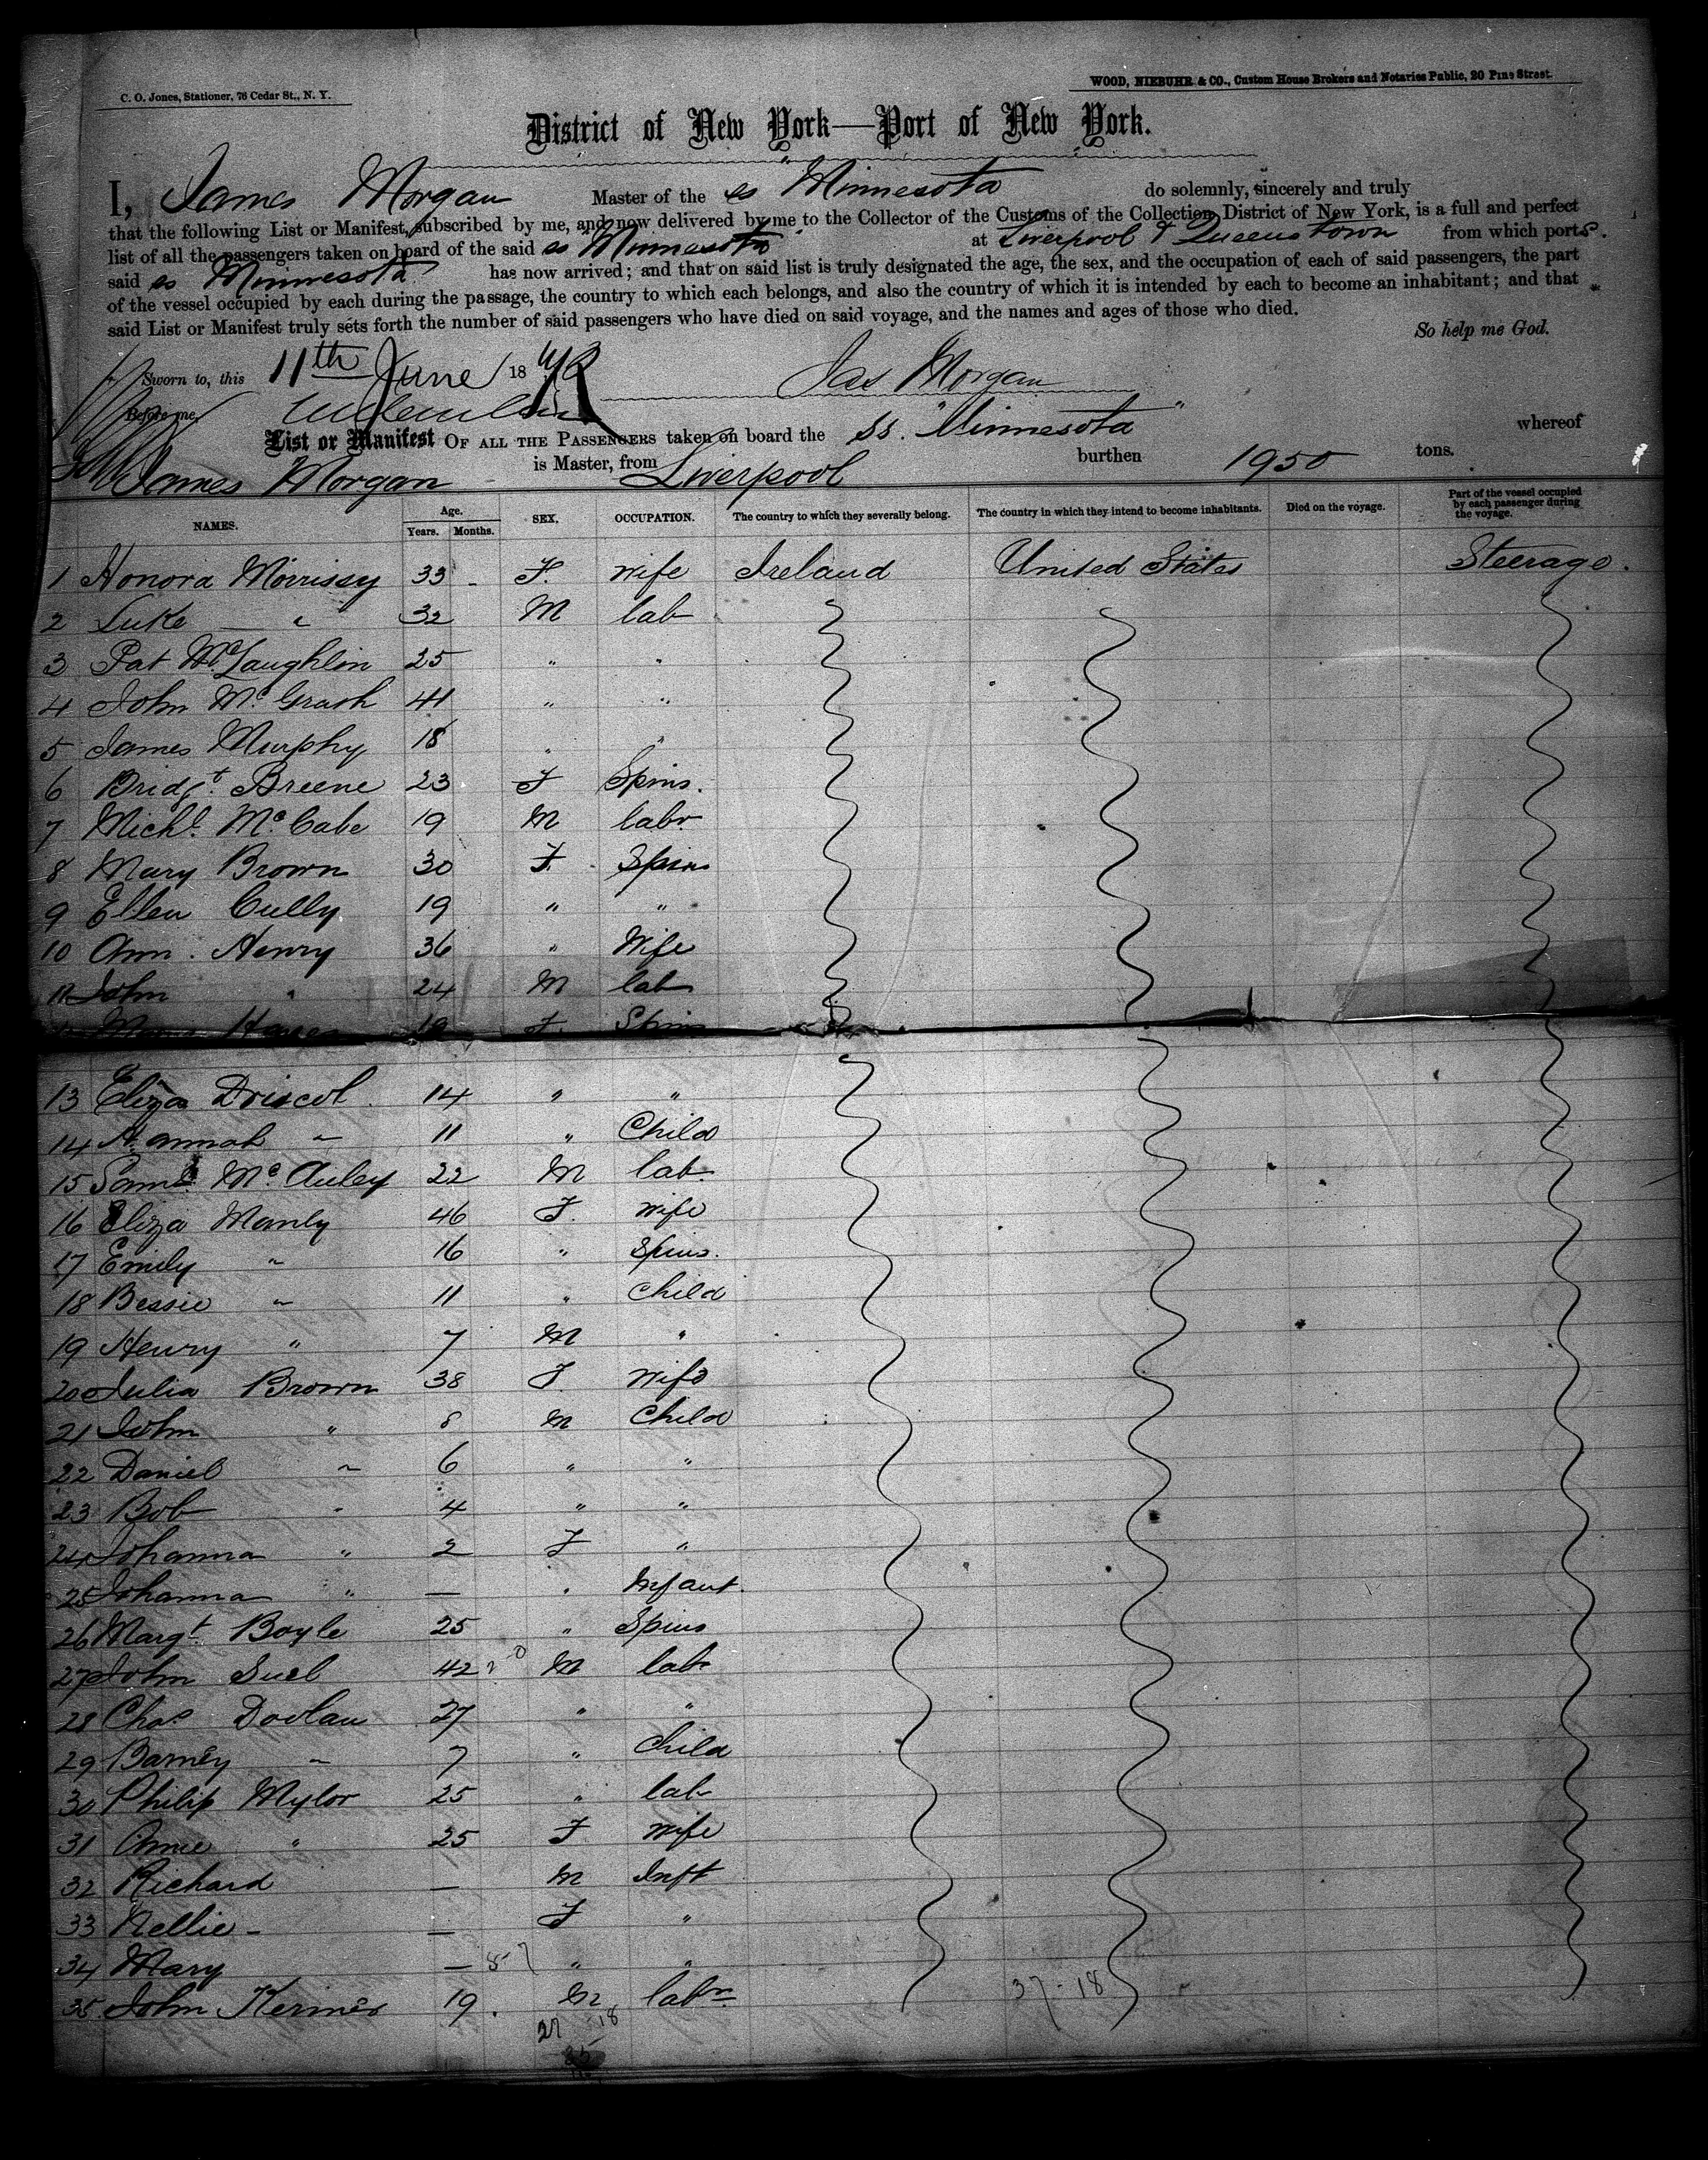 C. O. Jones, Stationer, 76 Cedar St., N. Y.
WOOD, NIEBUHR & CO., Custom House Brokers and Notaries Public, 20 Pine Street.
District of New York—Port of New York.
I, James Morgan Master of the ss "Minnesota do solemnly, sincerely and truly
that the following List or Manifest, subscribed by me, and now delivered by me to the Collector of the Customs of the Collection District of New York, is a full and perfect
list of all the passengers taken on board of the said ss Minnesota at Liverpool & Queenstown from which ports.
said ss Minnesota has now arrived; and that on said list is truly designated the age, the sex, and the occupation of each of said passengers, the part
of the vessel occupied by each during the passage, the country to which each belongs, and also the country of which it is intended by each to become an inhabitant; and that
said List or Manifest truly sets forth the number of said passengers who have died on said voyage, and the names and ages of those who died.
So help me God.
Sworn to, this 11th June 18
Jas Morgan
Before me,
List or Manifest OF ALL THE PASSENGERS taken on board the ss. "Minnesota" whereof
James Morgan is Master, from Liverpool burthen 1950 tons.
NAMES. Age. Years. Months. SEX. OCCUPATION. The country to which they severally belong. The country in which they intend to become inhabitants. Died on the voyage. Part of the vessel occupied by each passenger during the voyage.
1 Honora Morrissy 33 - F. wife Ireland United States Steerage.
2 Luke " 32 M lab
3 Pat McLaughlin 25 " "
4 John McGrath 41 " "
5 James Murphy 18 " "
6 Bridgt. Breene 23 F Spins.
7 Michl. McCabe 19 M labr
8 Mary Brown 30 F. Spins
9 Ellen Cully 19 " "
10 Ann. Henry 36 " Wife
11 John " 24 M lab
F. Spins
13 Eliza Driscol 14 " "
14 Hannah " 11 " Child
15 Saml. McAuley 22 M lab
16 Eliza Manly 46 F. wife
17 Emily " 16 " Spins.
18 Bessie " 11 " Child
19 Henry " 7 M "
20 Julia Brown 38 F. wife
21 John " 8 M Child
22 Daniel " 6 " "
23 Bob " 4 " "
24 Johanna " 2 F "
25 Johanna " — " Infant.
26 Margt. Boyle 25 " Spins
27 John 42 M lab
28 Chas Doolan 27 " "
29 Barney " 7 " Child
30 Philip Mylor 25 " lab
31 Annie " 25 F wife
32 Richard — M Inft
33 Nellie - — F "
34 Mary — " "
35 John 19. M labr
37-18
27 18